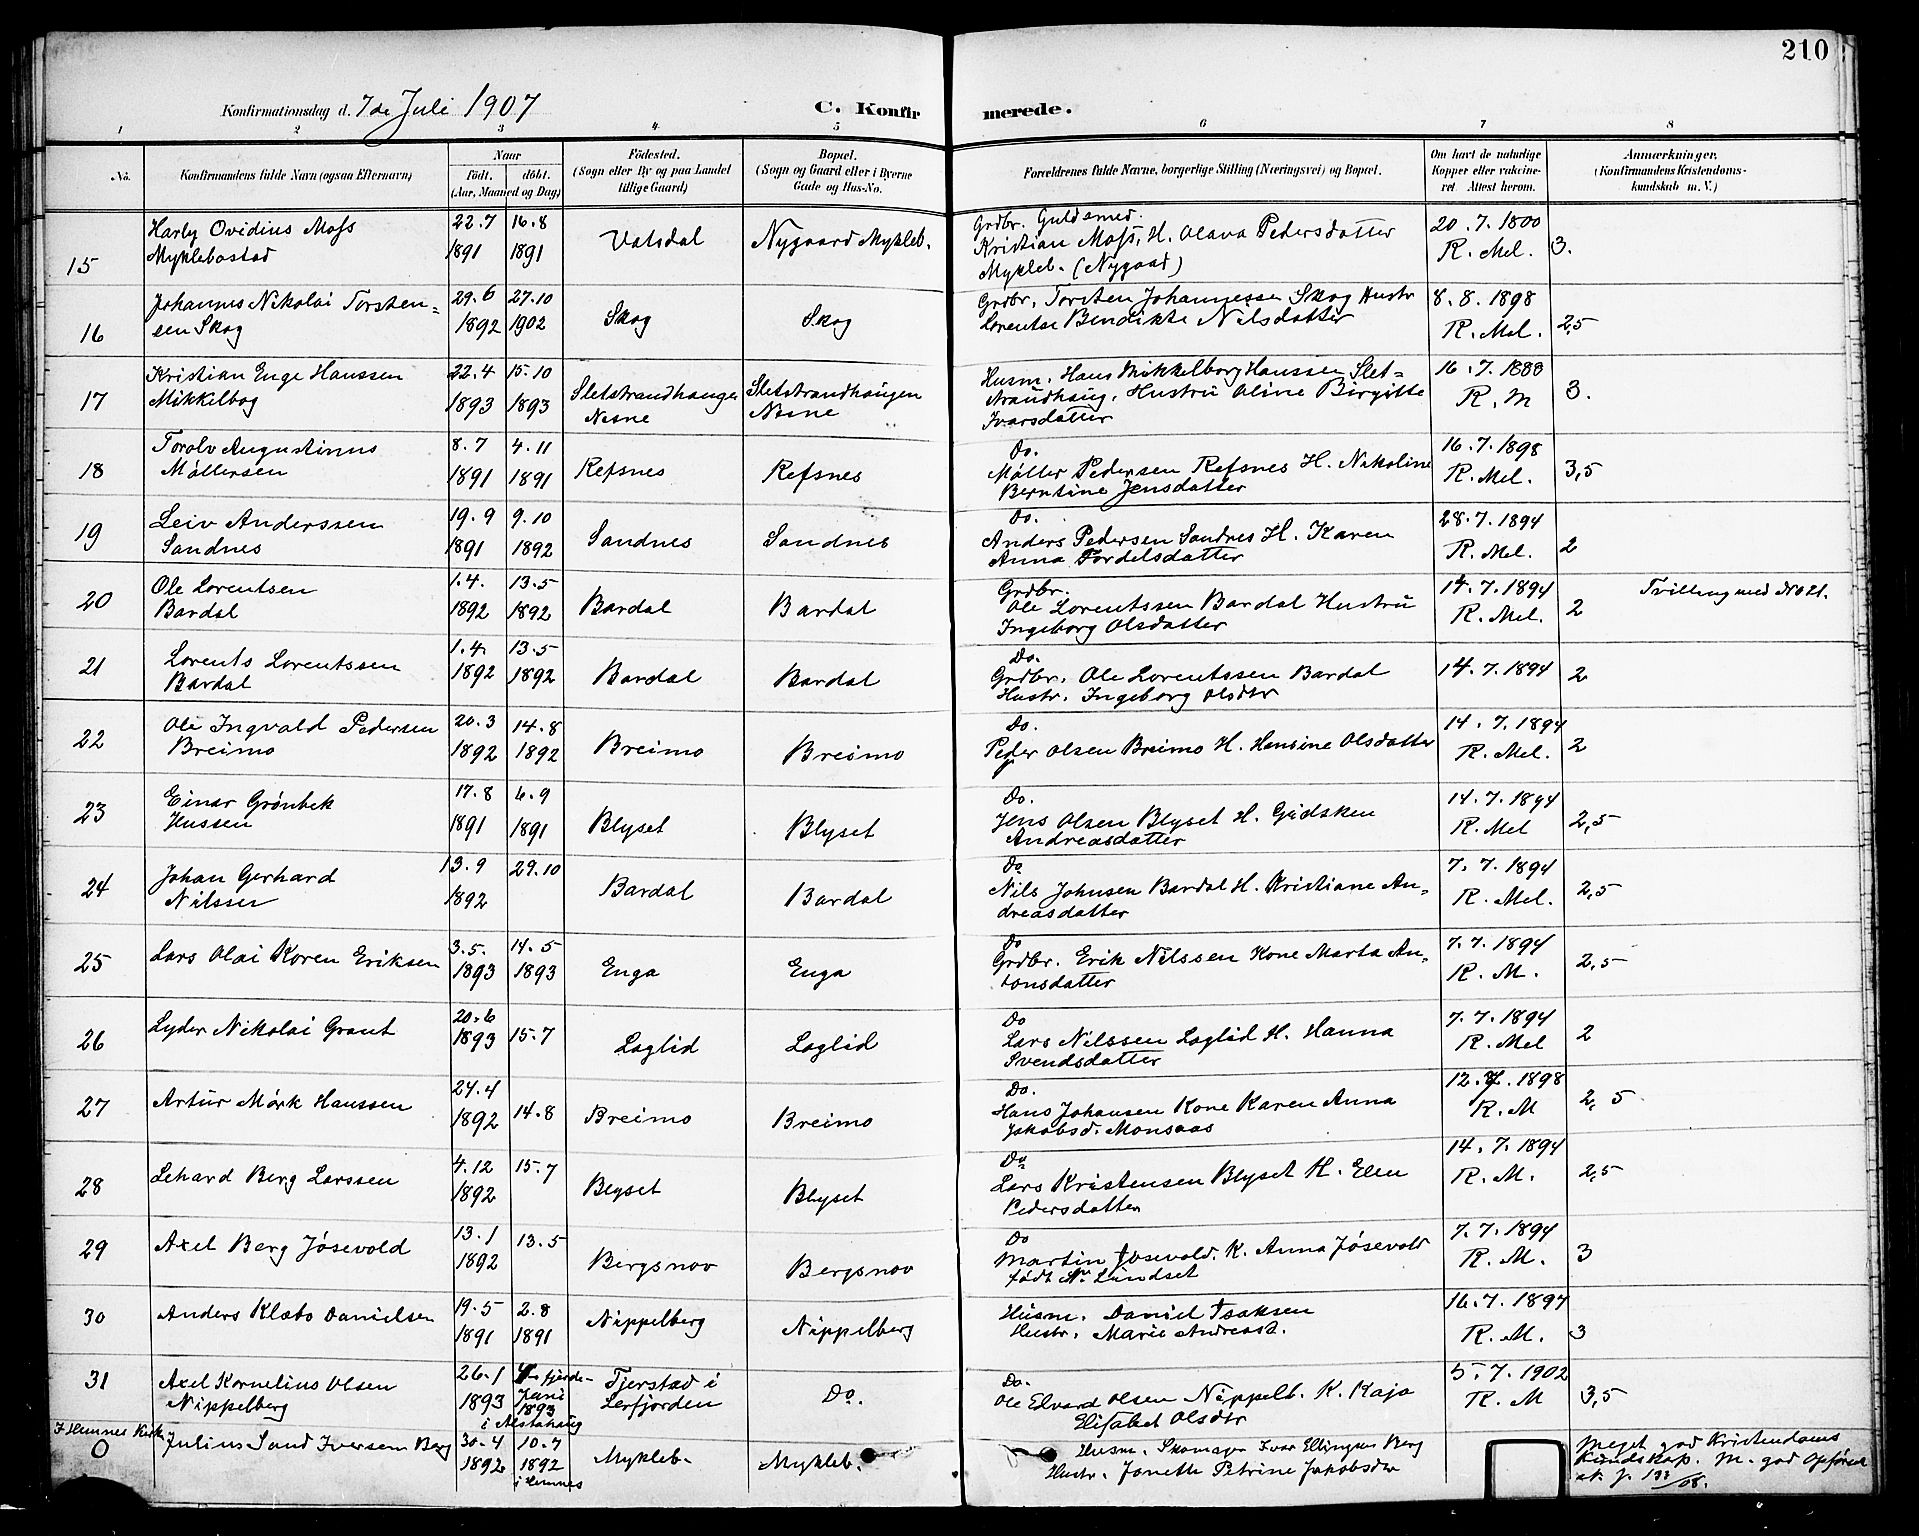 210
Konfirmationsdag d. 7de Juli 1907
C. Konfirmerede.
1 2 3 4 5 6 7 8
No.
Konfirmandens fulde Navn (ogsaa Efternavn)
Naar
født. døbt.
(Aar, Maaned og Dag)
Fødested.
(Sogn eller By og paa Landet
tillige Gaard)
Bopæl.
(Sogn og Gaard eller i Byerne
Gade og Hus-No.
Forældrenes fulde Navne, borgerlige Stilling (Næringsvei) og Bopæl.
Om havt de naturlige
Kopper eller vakcine-
ret. Attest herom.
Anmærkninger.
(Konfirmandens Kristendoms-
kundskab m. V.)
15
Harly Ovidius Moss
Myklebostad
22.7 16.8
1891 1891
Valsdal
Nygaard Mykleb.
Grdbr. Guldsmed.
Kristian Moss, H. Olava Pedersdatter
Mykleb. (Nygaard)
20.7.1800
R. Mel.
3.
16
Johannes Nikolai Torsten=
sen Skog
29.6 27.10
1892 1902
Skog
Skog
Grdbr. Torsten Johannessen Skog Hustr
Lorentse Bendikte Nilsdatter
8.8.1898
R. Mel.
2,5
17
Kristian Enge Hanssen
Mikkelbog
22.4 15.10
1893 1893
Sletstrandhaugen
Nesne
Sletstrandhaugen
Nesne
Husm. Hans Mikkelborg Hanssen Slet=
strandhaug, Hustru Oline Birgitte
Ivarsdatter
16.7.1898
R. M
3.
18
Torolv Augustinus
Møllersen
8.7 4.11
1891 1891
Refsnes
Refsnes
Do.
Møller Pedersen Refsnes H. Nikoline
Berntine Jensdatter
16.7.1898
R. Mel.
3,5
19
Leiv Anderssen
Sandnes
19.9 9.10
1891 1892
Sandnes
Sandnes
Do.
Anders Pedersen Sandnes H. Karen
Anna Fordelsdatter
28.7.1894
R. Mel.
2
20
Ole Lorentsen
Bardal
1.4. 13.5
1892 1892
Bardal
Bardal
Grdbr.
Ole Lorentssen Bardal Hustru
Ingeborg Olsdatter
14.7.1894
R. Mel.
2
Tvilling med No 21.
21
Lorents Lorentssen
Bardal
1.4. 13.5
1892 1892
Bardal
Bardal
Do.
Grdbr. Ole Lorentssen Bardal
Hustr. Ingeborg Olsdtr
14.7.1894
2
22
Ole Ingvald Pedersen
Breimo
20.3 14.8
1892 1892
Breimo
Breimo
Do.
Peder Olsen Breimo H. Hansine Olsdatter
14.7.1894
R. Mel.
2
23
Einar Grønbek
17.8 6.9
1891 1891
Blyset
Blyset
Do.
Jens Olsen Blyset H. Gidsken
Andreasdatter
14.7.1894
R. Mel
2,5
24
Johan Gerhard
Nilssen
13.9 29.10
1892
Bardal
Bardal
Do
Nils Johnsen Bardal H. Kristiane An=
dreasdatter
7.7.1894
R. Mel.
2,5
25
Lars Olai Koren Eriksen
3.5. 14.5
1893 1893
Enga
Enga
Do
Grdbr. Erik Nilssen Kone Marta An=
tonsdatter
7.7.1894
R. M.
2,5
26
Lyder Nikolai Grant
20.6
1893 15.7
Laglid
Laglid
Do
Lars Nilssen Laglid H. Hanna
Svendsdatter
7.7.1894
R. Mel
2
27
Artur Mørk Hanssen
24.4
1892 14.8
Breimo
Breimo
Do.
Hans Johansen Kone Karen Anna
Jakobsd. Monsaas
12.7.1898
R. M
2,5
28
Lehard Berg Larssen
4.12 15.7
1892
Blyset
Blyset
Do
Lars Kristensen Blyset H. Elen
Pedersdatter
14.7.1894
R. M.
2,5
29
Axel Berg Jøsevold
13.1 13.5
1892
Bergsnov
Bergsnov
Do
Martin Jøsevold. K. Anna Jøsevold
født Lindset
7.7.1894
R. M.
3
30
Anders Klæbo Danielsen
19.5 2.8
1891 1891
Nippelberg
Nippelberg
Husm. Daniel Isaksen
Hustr. Marie Andreasd.
16.7.1897
R. M.
3
31
Axel Kornelius Olsen
Nippelberg
26.1 fjerde-
1893 Juni
1893
i Alstahaug
Tjerstad i
Leifjorden
Do.
Do.
Ole Edvard Olsen Nippelb. K. Kaja
Elisabet Olsdtr
5.7.1902
R. M
3,5
I Hemnes Kirke
0
Julius Sand Iversen Berg
30.4 10.7
1892 1892
i Hemnes
Mykleb.
Mykleb.
Husm. Skomager Ivar Ellingsen Berg
Hustr. Jonette Petrine Jakobsdtr
Meget god Kristendoms
Kundskap. M. god Opførsel